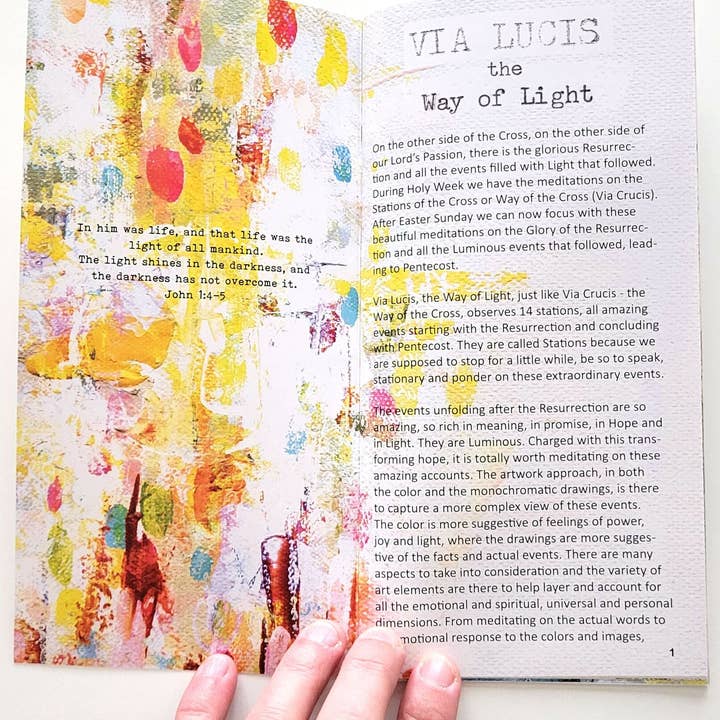 In him was life, and that life was the
light of all mankind.
The light shines in the darkness, and
the darkness has not overcome it.
John 1:4-5
VIA LUCIS
the
Way of Light
On the other side of the Cross, on the other side of
our Lord's Passion, there is the glorious Resurrec-
tion and all the events filled with Light that followed.
During Holy Week we have the meditations on the
Stations of the Cross or Way of the Cross (Via Crucis).
After Easter Sunday we can now focus with these
beautiful meditations on the Glory of the Resurrec-
tion and all the Luminous events that followed, lead-
ing to Pentecost.
Via Lucis, the Way of Light, just like Via Crucis - the
Way of the Cross, observes 14 stations, all amazing
events starting with the Resurrection and concluding
with Pentecost. They are called Stations because we
are supposed to stop for a little while, be so to speak,
stationary and ponder on these extraordinary events.
The events unfolding after the Resurrection are so
amazing, so rich in meaning, in promise, in Hope and
in Light. They are Luminous. Charged with this trans-
forming hope, it is totally worth meditating on these
amazing accounts. The artwork approach, in both
the color and the monochromatic drawings, is there
to capture a more complex view of these events.
The color is more suggestive of feelings of power,
joy and light, where the drawings are more sugges-
tive of the facts and actual events. There are many
aspects to take into consideration and the variety of
art elements are there to help layer and account for
all the emotional and spiritual, universal and personal
dimensions. From meditating on the actual words to
motional response to the colors and images,
1